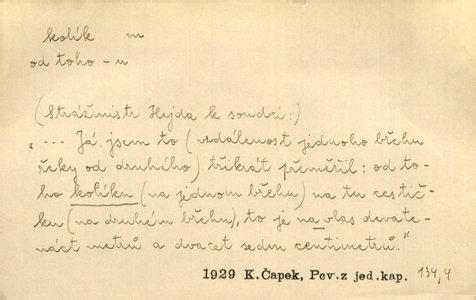 kolík m
od toho -u
(Strážmistr Hejda k soudci:)
"... Já jsem to (vzdálenost jednoho břehu
řeky od druhého) třikrát přeměřil: od to-
ho kolíku (na jednom břehu) na tu cestič-
ku (na druhém břehu), to je na vlas devate-
náct metrů a dvacet sedm centimetrů."
1929 K.Čapek, Pov.z jed.kap. 134,4